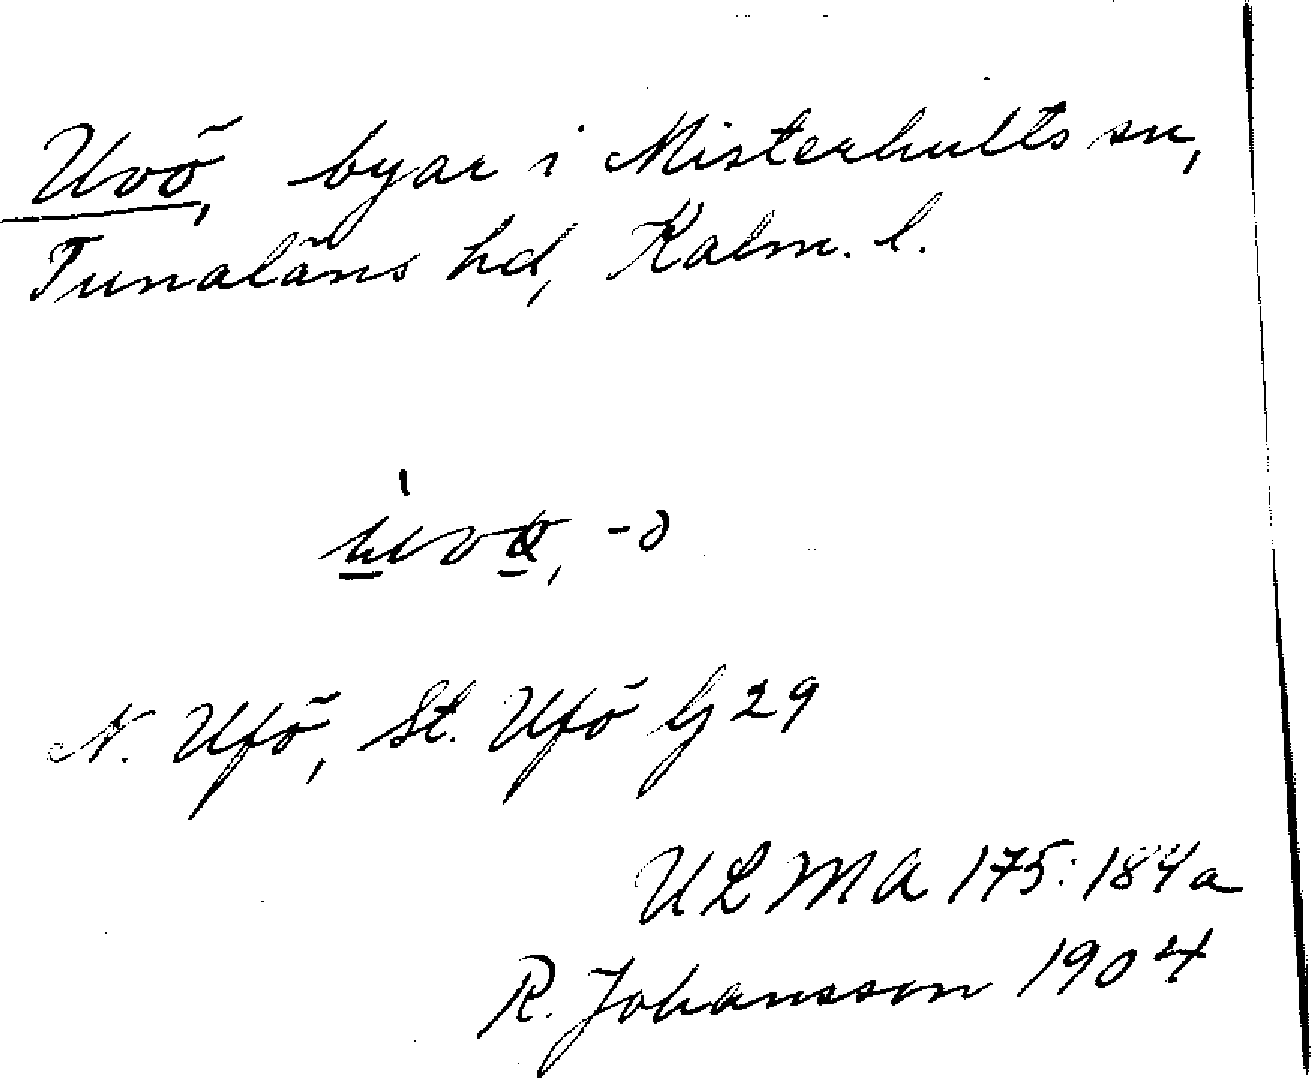 Uvö, byar i Misterhults sn,
Tunaläns hd, Kalm. l.
N. Ufö, St. Ufö Gj 29
ULMA 175:184a
R. Johansson 1904